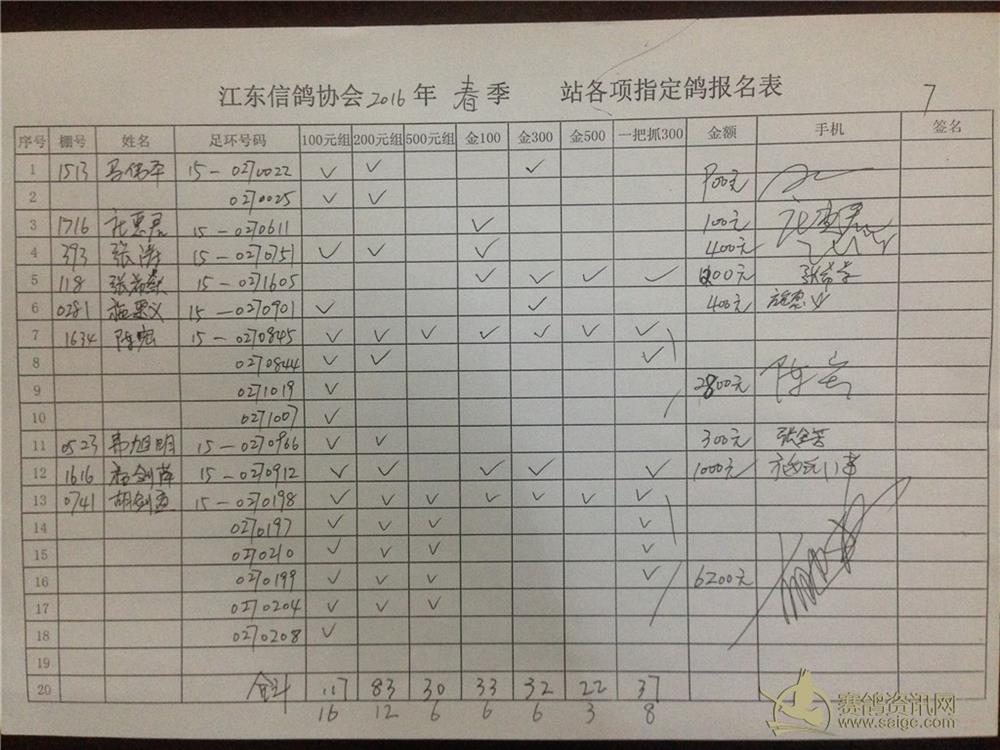 江东信鸽协会2016年 春季 站各项指定鸽报名表 7
序号 棚号 姓名 足环号码 100元组 200元组 500元组 金100 金300 金500 一把抓300 金额 手机 签名
1 1513 马伟平 15-0270022 ✓ ✓ ✓ 900元
2 0270025 ✓ ✓
3 1716 杜惠君 15-0270611 ✓ 100元
4 393 张涛 15-0270751 ✓ ✓ ✓ 400元
5 118 15-0271605 ✓ ✓ ✓ ✓ 1200元
6 0281 15-0270901 ✓ ✓ 400元
7 1634 陈宏 15-0270845 ✓ ✓ ✓ ✓ ✓ ✓ ✓
8 0270844 ✓ ✓ ✓
9 0271019 ✓ 2800元 陈宏
10 0271007 ✓
11 0523 韦旭明 15-0270966 ✓ ✓ 300元 张金芳
12 1616 15-0270912 ✓ ✓ ✓ ✓ ✓ 1000元
13 0741 胡剑孟 15-0270198 ✓ ✓ ✓ ✓ ✓ ✓ ✓
14 0270197 ✓ ✓ ✓ ✓
15 0270210 ✓ ✓ ✓ ✓
16 0270199 ✓ ✓ ✓ ✓ 6200元
17 0270204 ✓ ✓ ✓
18 0270208 ✓
19
20 合计 117 83 30 33 32 22 37
16 12 6 6 6 3 8
赛鸽资讯网
www.saige.com